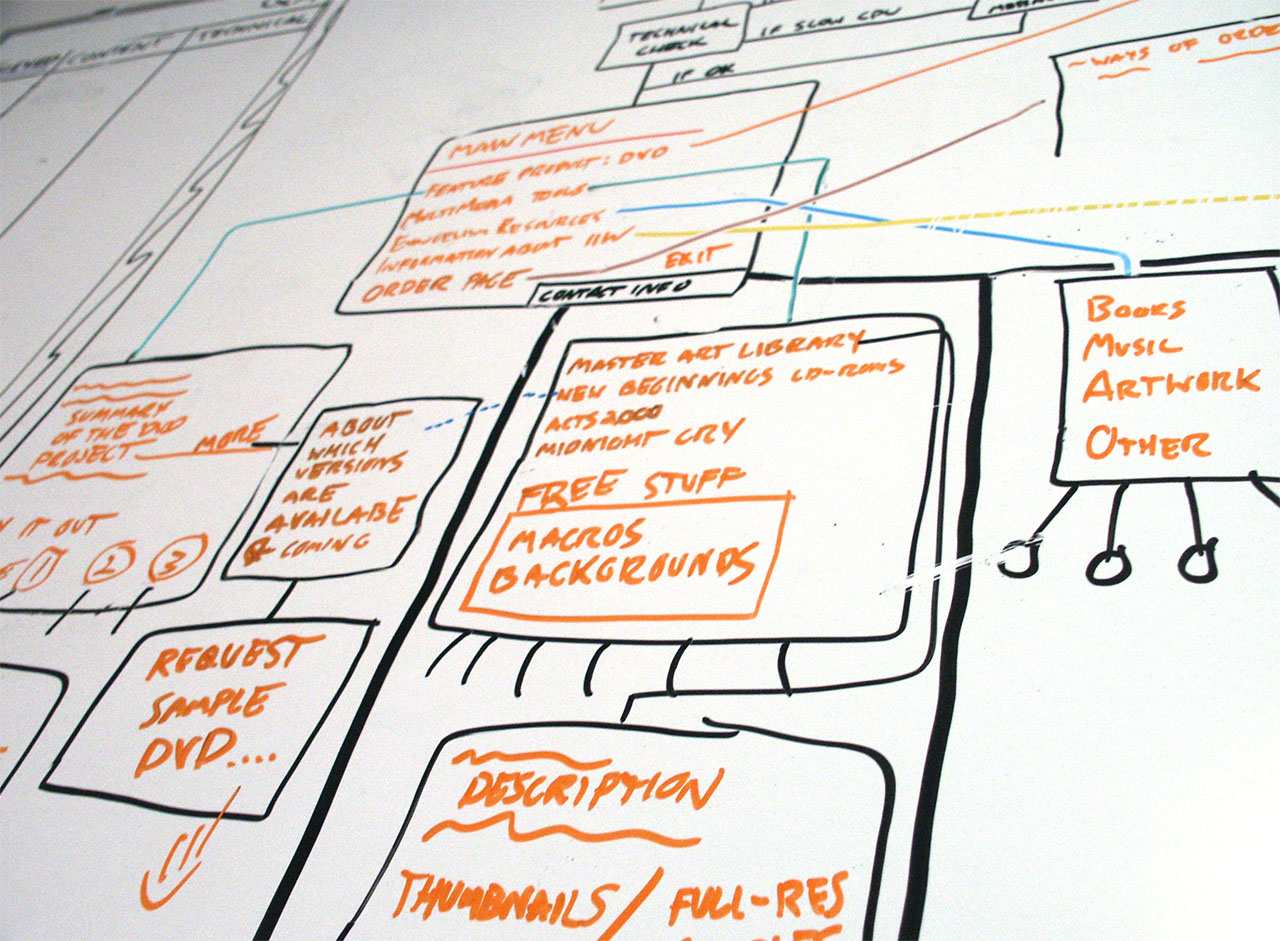 CONTENT
TECHNICAL
TECHNICAL
CHECK
IF SLOW CPU
IF OK
~ WAYS OF ORDE
MAIN MENU
FEATURE PRODUCT: DVD
MULTIMEDIA TOOLS
EVANGELISM RESOURCES
INFORMATION ABOUT IIW
ORDER PAGE
EXIT
CONTACT INFO
SUMMARY
OF THE DVD
PROJECT
MORE
Y IT OUT
1 2 3
ABOUT
WHICH
VERSIONS
ARE
AVAILABE
& COMING
REQUEST
SAMPLE
DVD....
MASTER ART LIBRARY
NEW BEGINNINGS CD-ROMS
ACTS 2000
MIDNIGHT CRY
FREE STUFF
MACROS
BACKGROUNDS
BOOKS
MUSIC
ARTWORK
OTHER
DESCRIPTION
THUMBNAILS / FULL-RES